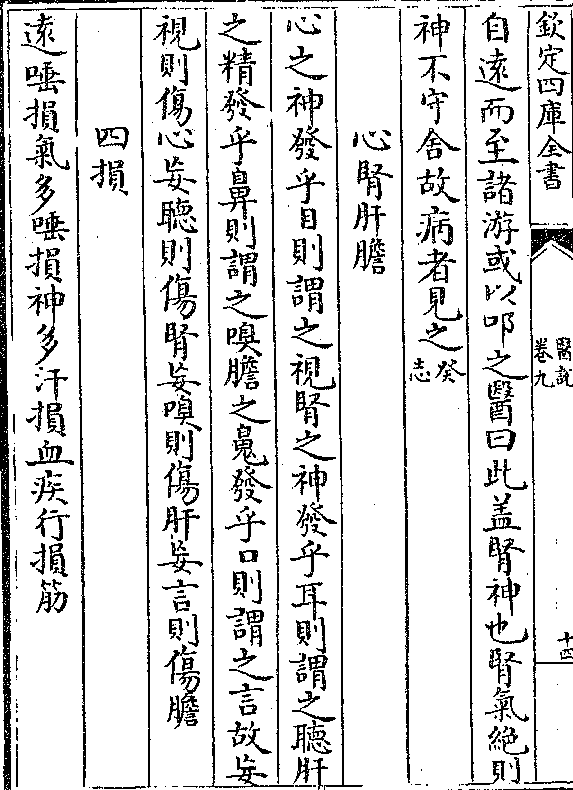 欽定四庫全書
醫說
卷九
十四
自遠而至諸游或以叩之醫曰此盖腎神也腎氣絶則
神不守舍故病者見之癸志
心腎肝膽
心之神發乎目則謂之視腎之神發乎耳則謂之聽肝
之精發乎鼻則謂之嗅膽之䰟發乎口則謂之言故妄
視則傷心妄聽則傷腎妄嗅則傷肝妄言則傷膽
四損
遠唾損氣多唾損神多汗損血疾行損筋